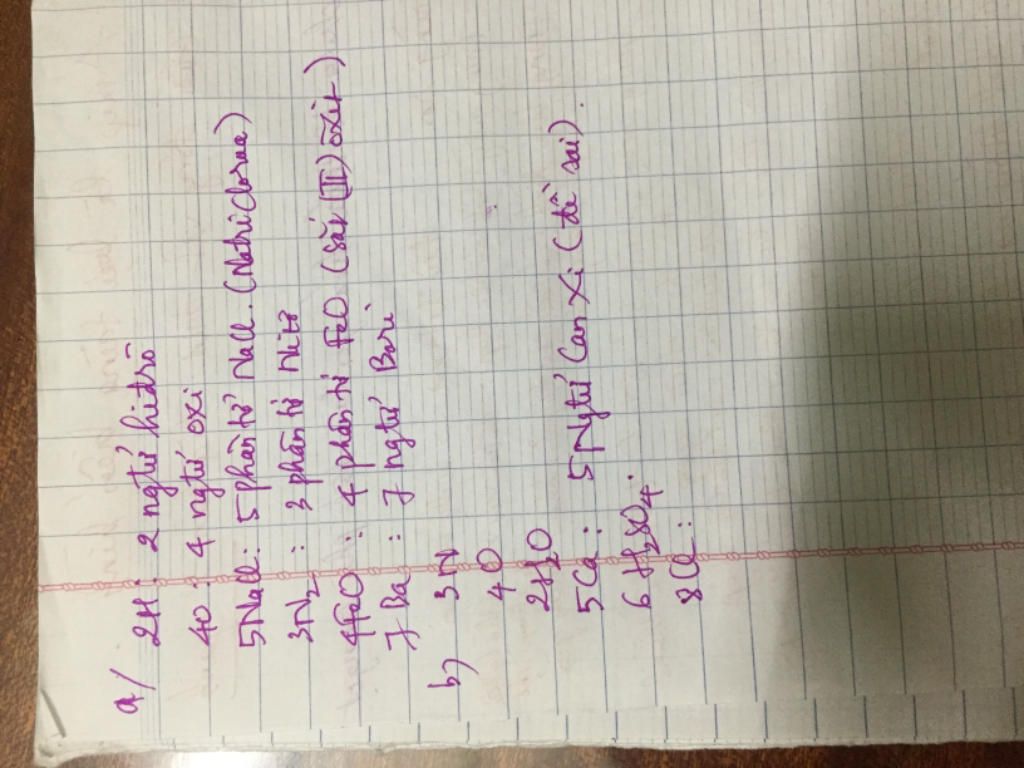 a/
2H : 2 ngtử hiđrô
4O : 4 ngtử oxi
5NaCl : 5 phân tử NaCl. (Natri clorua)
3N₂ : 3 phân tử Nitơ
4FeO : 4 phân tử FeO (Sắt (II) oxit)
7 Ba : 7 ngtử Bari
b) 3N
4O
2H₂O
5Ca : 5 Ngtử Can xi (đề sai).
6 H₂SO₄.
8Cl :